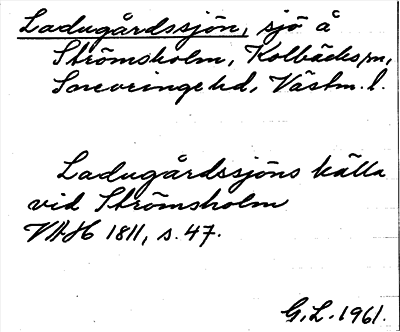 Ladugårdssjön, sjö å
Strömsholm, Kolbäcks sn,
Snevringe hd, Västm. l.
Ladugårdssjöns källa
vid Strömsholm
VAH 1811, s. 47.
G. L. 1961.